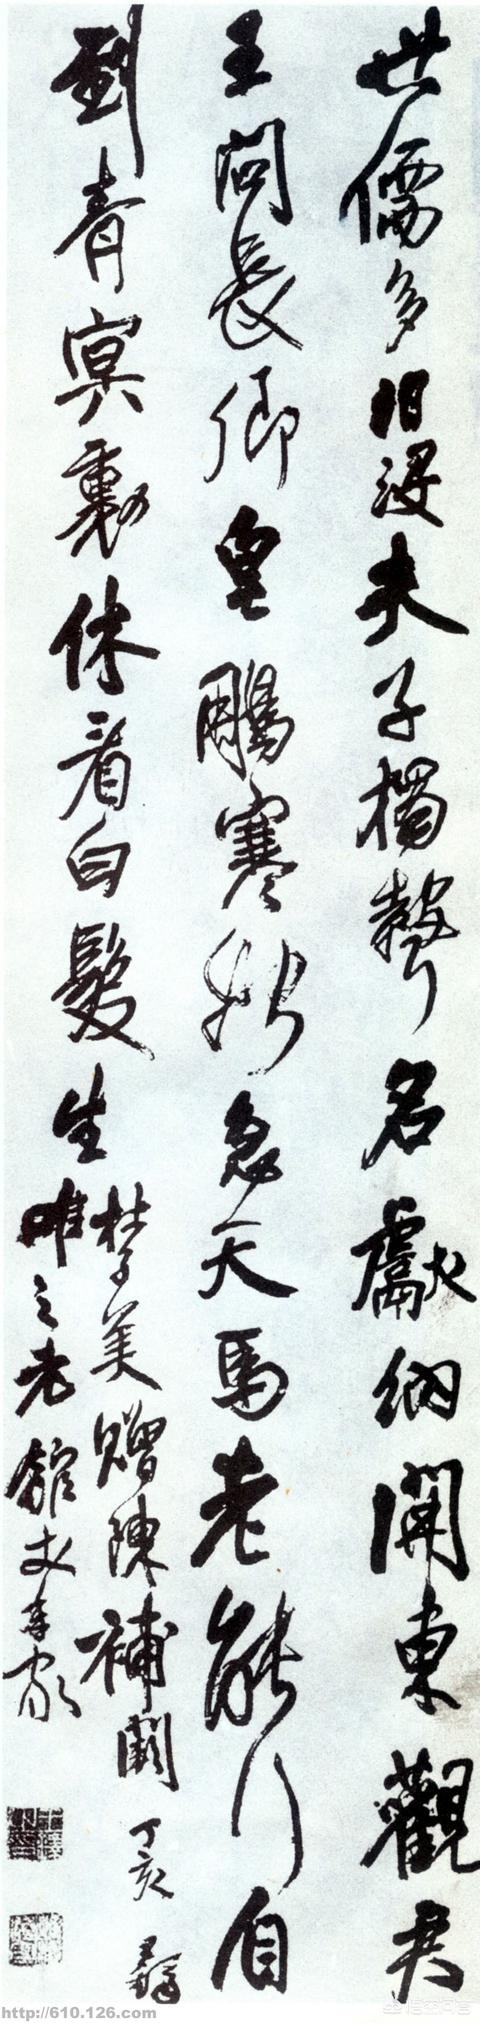 世儒多汩沒夫子獨聲名獻納開東觀君
王問長卿皂鵰寒始急天馬老能行自
到青冥裏休看白髮生
杜子美贈陳補闕 丁亥 王鐸
唯之老館丈
http://610.126.com